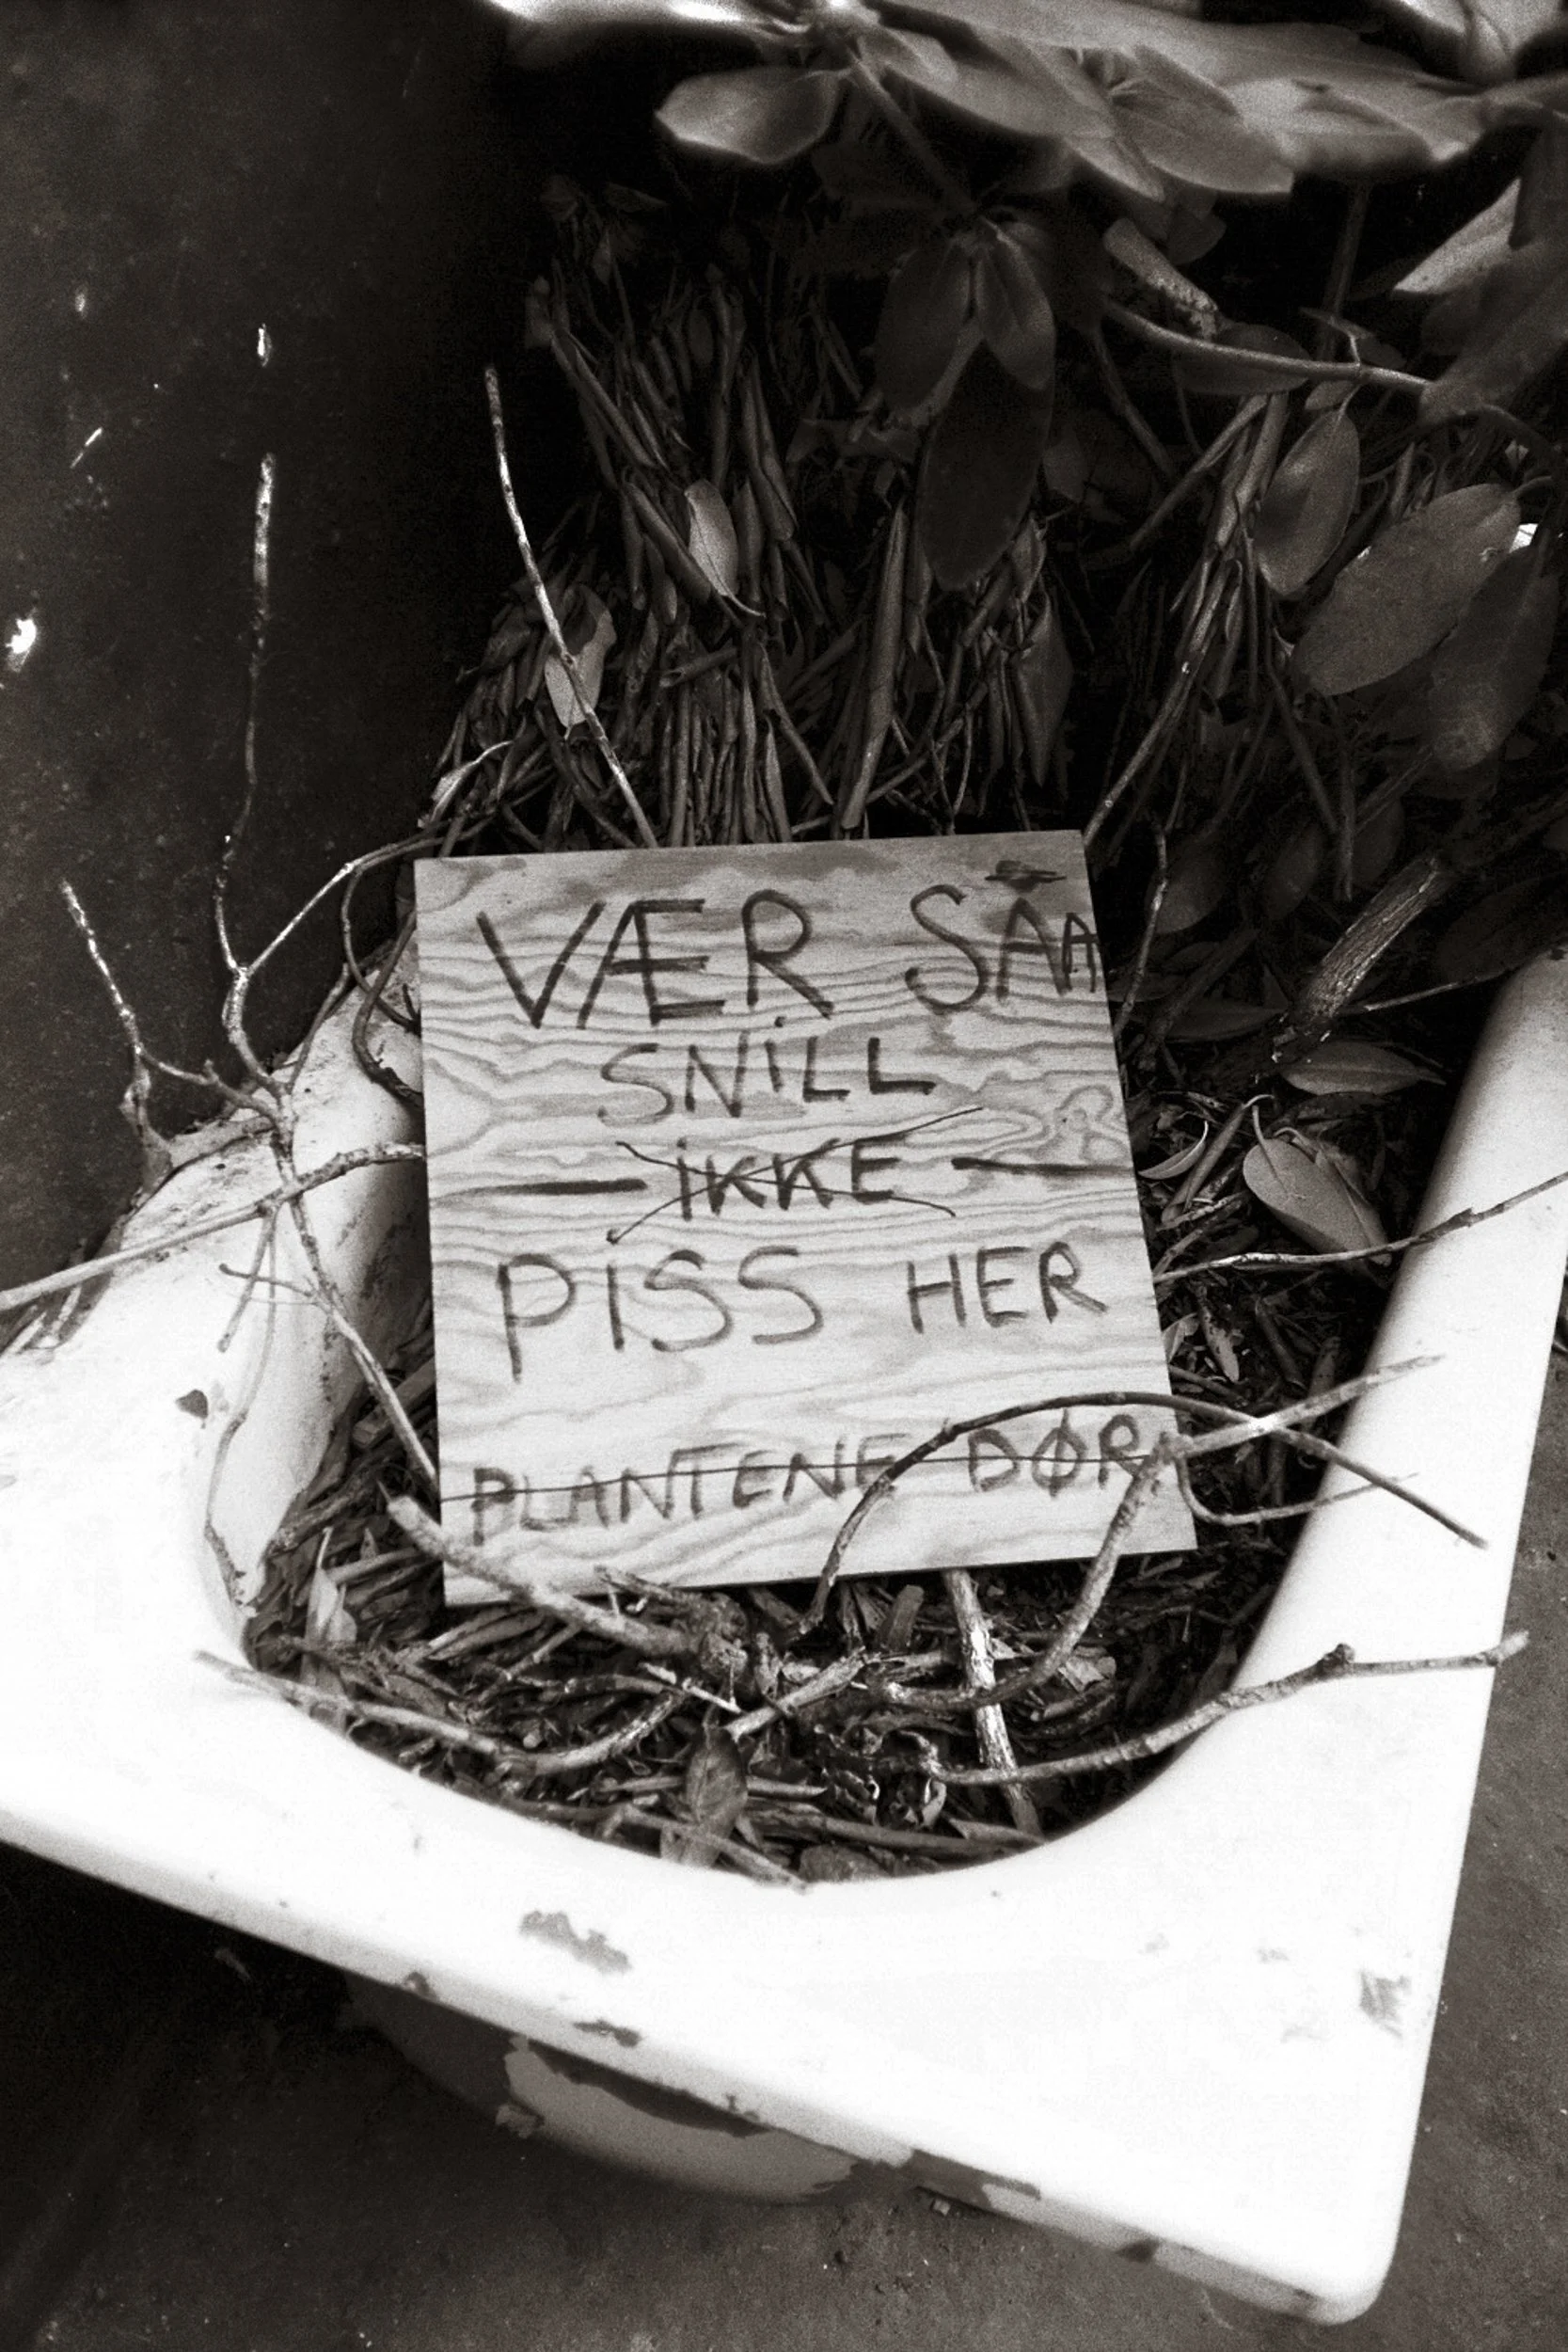 VÆR SAA
SNiLL
— iKKE —
PiSS HER
PLANTENE DØR